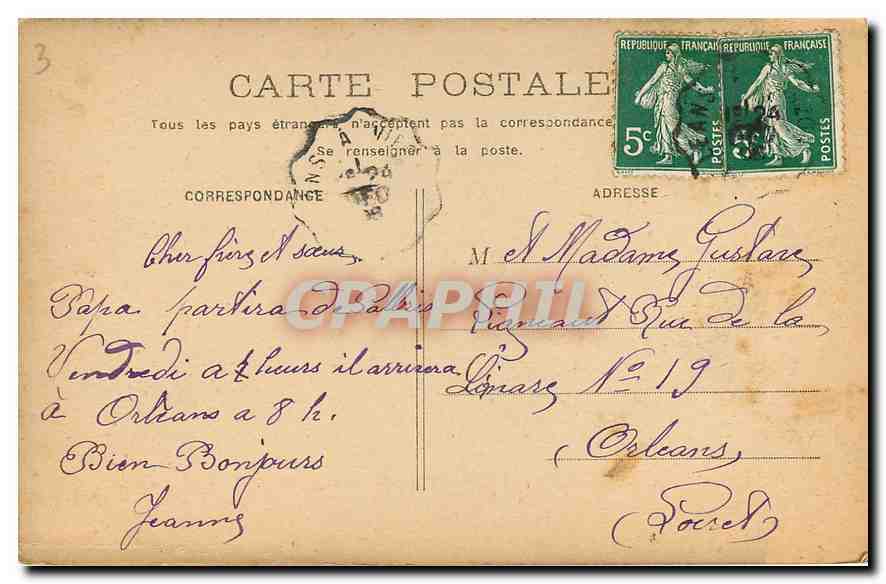 3
CARTE POSTALE
Tous les pays étrangers n'acceptent pas la correspondance
Se renseigner à la poste.
REPUBLIQUE FRANÇAISE
5c
POSTES
REPUBLIQUE FRANÇAISE
5c
POSTES
24
CORRESPONDANCE
ADRESSE
Cher frère et sœur
Papa partira de
Vendredi a heurs il arrivera
à Orléans a 8 h.
Bien Bonjours
Jeanne
M et Madame Gustave
Rue de la
No 19
(Orleans)
(Loiret)
CPAPHIL